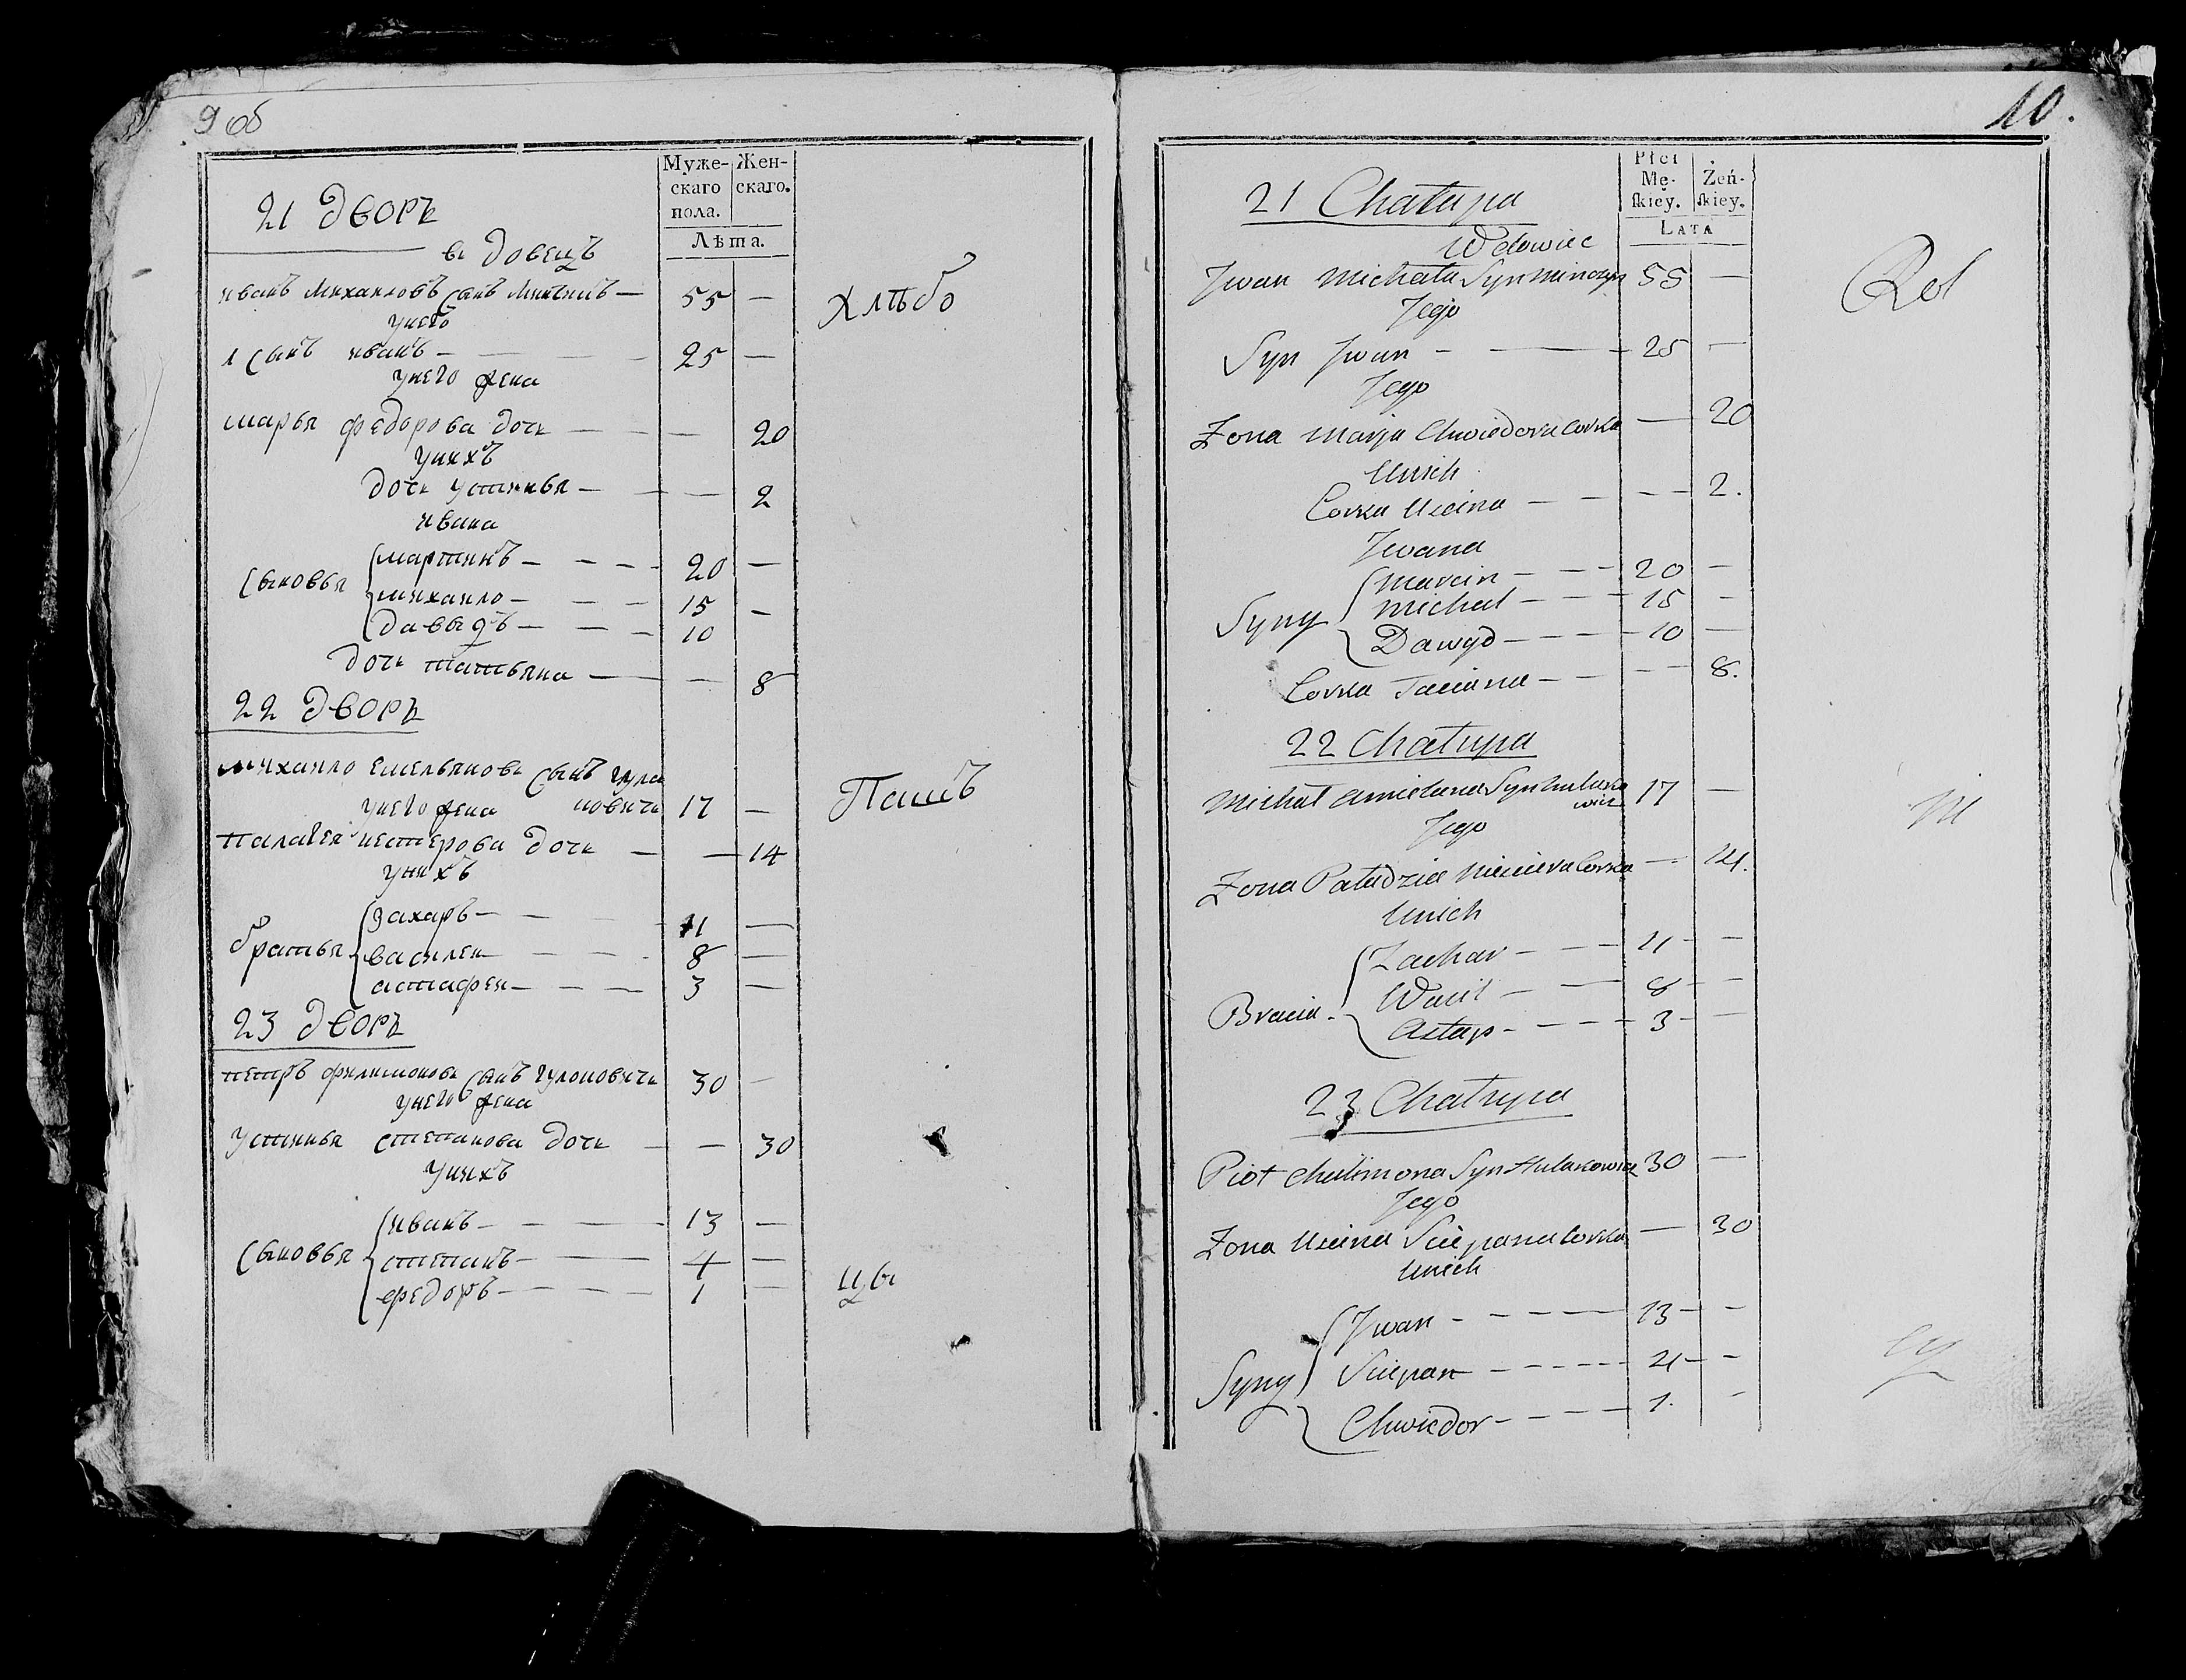 9 об
Муже-
скаго
пола.
Жен-
скаго.
Лѣта.
21 Дворъ
вдовецъ
иванъ Михаиловъ сынъ Минчинъ — 55 —
Унего
1 сынъ иванъ — 25 —
Унего жена
марья федорова дочь — — 20
Унихъ
дочь устинья — — 2
ивана
сыновья
мартинъ — 20 —
михаило — 15 —
давыдъ — 10
дочь татьяна — — 8
Хлѣбо
22 Дворъ
михаило емельяновъ сынъ гула
Унего жена новичь 17 —
палагея нестерова дочь — — 14
Унихъ
братья
захаръ — 11 —
василеи — 8 —
астафеи — 3 —
Пашъ
23 Дворъ
петръ филимоновъ сынъ гулоновичь 30 —
Унего жена
устинья степанова дочь — — 30
Унихъ
сыновья
иванъ — 13 —
степанъ — 4 —
федоръ — 1 —
цы
10.
Płci
Mę-
skiey.
Żeń-
skiey.
LATA
21 Chałupa
Wdowiec
Jwan Michała Syn Minczyn 55 —
Jego
Syn Jwan — 25 —
Jego
Żona Marja Chwiedora Corka — 20
Unich
Corka Uscina — — 2.
Jwana
Syny
Marcin — 20 —
Michał — 15 —
Dawyd — 10 —
Corka Taciana — — 8.
Rol
22 Chałupa
Michał Amielana Syn Hulano
wicz 17 —
Jego
Żona Paładzia Niesciera Corka — 14.
Unich
Bracia
Zachar — 11 —
Wasil — 8 —
Astap — 3 —
ni
23 Chałupa
Piot Chilimona Syn Hulanowicz 30 —
Jego
Żona Uscina Sciepana Corka — 30
Unich
Syny
Jwan — 13 —
Sciepan — 4 —
Chwiedor — 1. —
cy